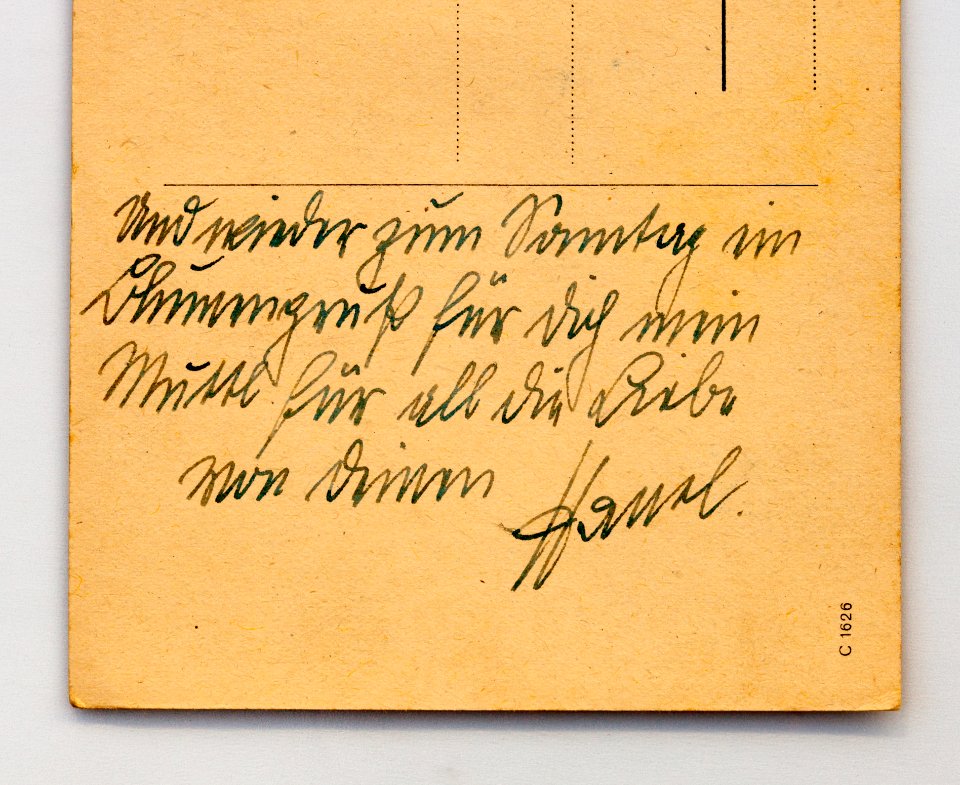 Und wieder zum Sonntag ein
Blumengruß für dich mein
Muttl für all die Liebe
von deinem Hansl.
C 1626